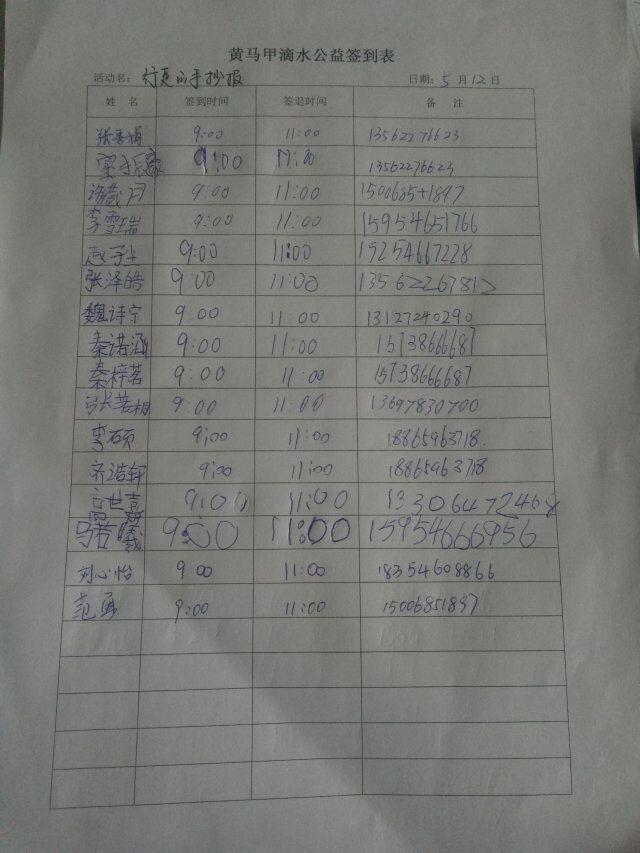 黄马甲滴水公益签到表
活动名: 手抄报 日期: 5月12日
姓 名 签到时间 签退时间 备 注
9:00 11:00 13562276623
9:00 11:00 13562276623
9:00 11:00
李雪瑞 9:00 11:00 15954651766
9:00 11:00 15254667228
张泽皓 9:00 11:00 13562267812
魏诗宁 9 00 11 00 13127240290
秦诺涵 9:00 11:00 15738666687
秦梓茗 9:00 11:00 15738666687
张若桐 9:00 11:00 13697830700
李硕 9:00 11:00 18865963718
齐浩轩 9:00 11:00 18865963718
高世嘉 9:00 11:00 13306472468
马若曦 9:00 11:00 15954666956
刘心怡 9:00 11:00 18354608866
范勇 9:00 11:00 15006851897